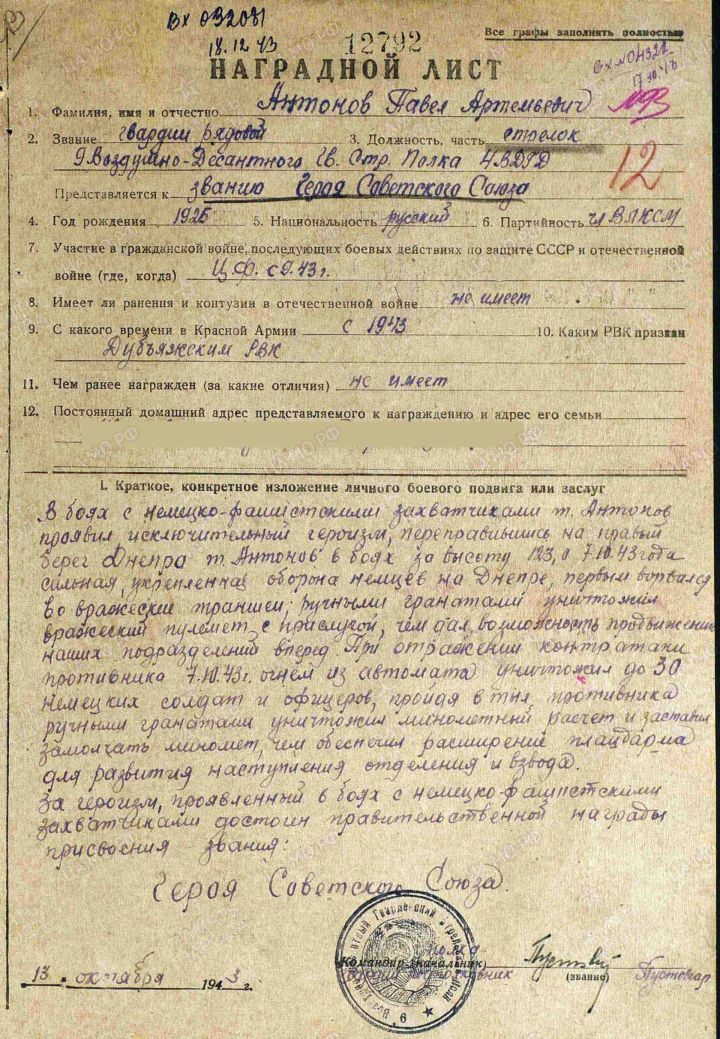 Вх 032081
18.12.43
12792
Все графы заполнять полностью
Вх №04322
НАГРАДНОЙ ЛИСТ
1. Фамилия, имя и отчество Антонов Павел Артемьевич №93
2. Звание гвардии рядовой 3. Должность, часть стрелок
9 Воздушно-Десантного Гв. Стр. Полка 4ВДГД
12
Представляется к званию Героя Советского Союза
4. Год рождения 1925 5. Национальность русский 6. Партийность чл ВЛКСМ
7. Участие в гражданской войне, последующих боевых действиях по защите СССР и отечественной
войне (где, когда) Ц.Ф. с 9.43 г.
8. Имеет ли ранения и контузии в отечественной войне не имеет
9. С какого времени в Красной Армии с 1943 10. Каким РВК призван
Дубъяжским РВК
11. Чем ранее награжден (за какие отличия) не имеет
12. Постоянный домашний адрес представляемого к награждению и адрес его семьи
I. Краткое, конкретное изложение личного боевого подвига или заслуг
В боях с немецко-фашистскими захватчиками т. Антонов
проявил исключительный героизм, переправившись на правый
берег Днепра т. Антонов в боях за высоту 123,0 7.10.43 года
сильная, укрепленная оборона немцев на Днепре, первым ворвался
во вражеские траншеи, ручными гранатами уничтожил
вражеский пулемет с прислугой, чем дал возможность продвижению
наших подразделений вперед. При отражении контратаки
противника 7.10.43 г. огнем из автомата уничтожил до 30
немецких солдат и офицеров, пройдя в тыл противника
ручными гранатами уничтожил минометный расчет и заставил
замолчать миномет, чем обеспечил расширение плацдарма
для развития наступления отделения и взвода.
За героизм, проявленный в боях с немецко-фашистскими
захватчиками достоин правительственной награды
присвоения звания:
Героя Советского Союза
полка
Командир (начальник)
(звание) Пустовар
13. октября 1943 г.
6